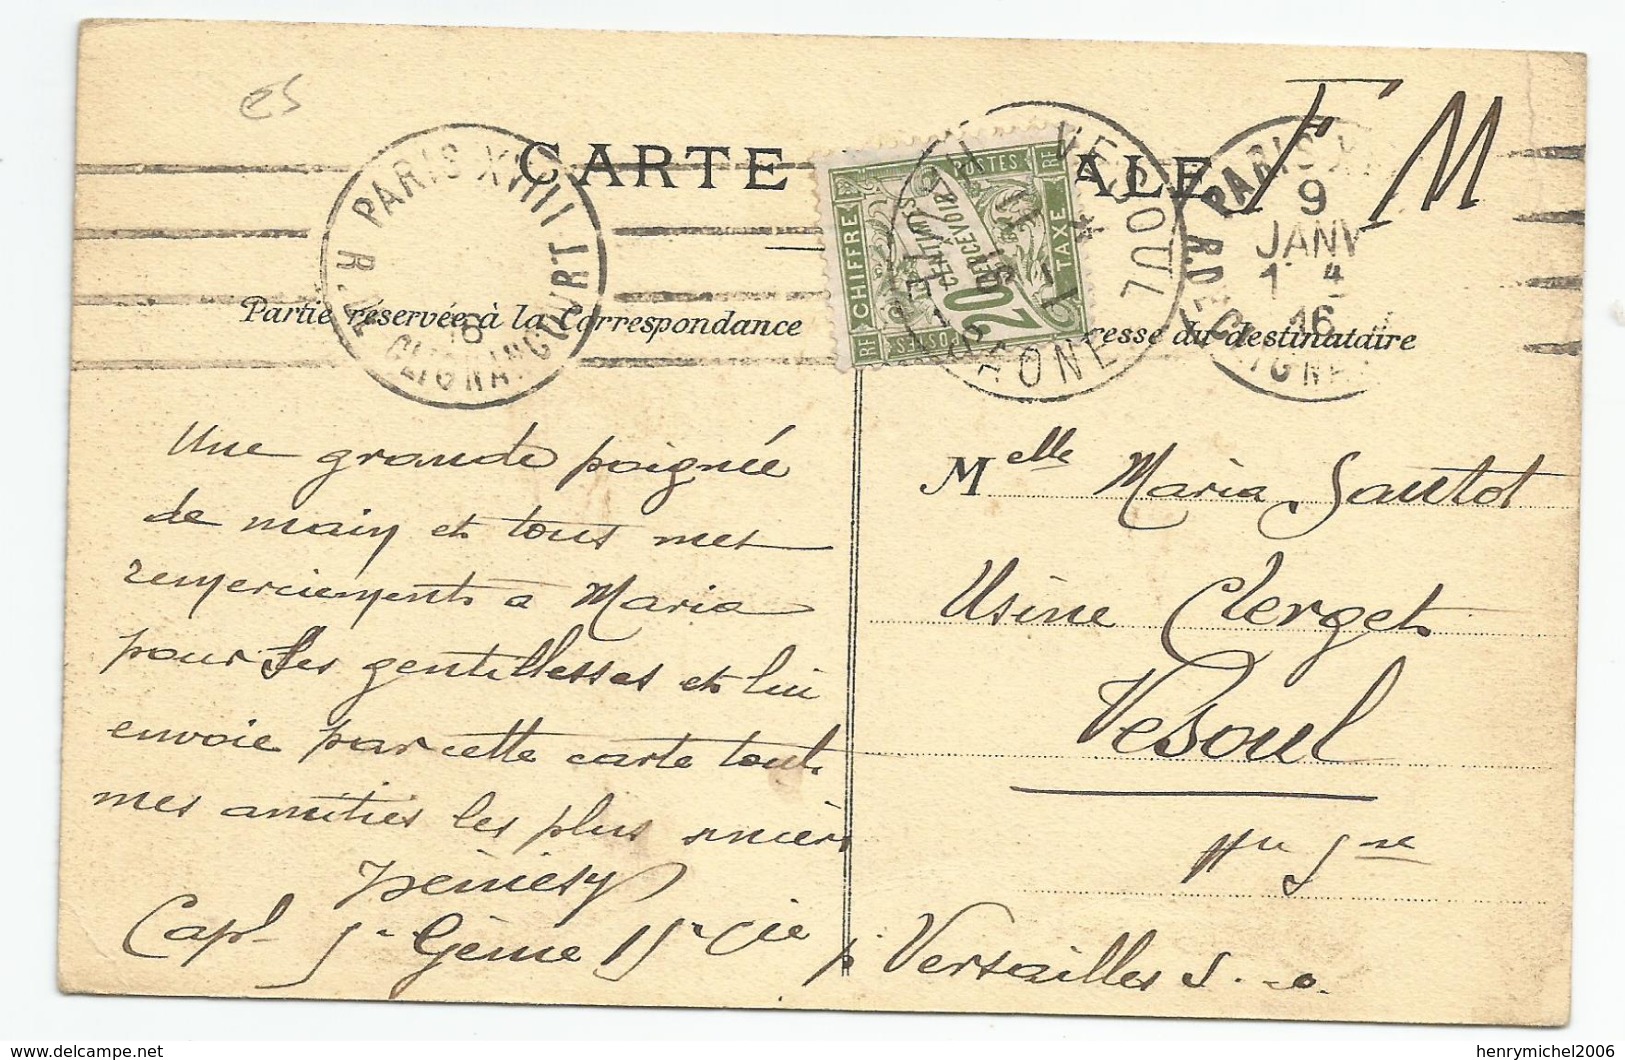 es
F M
CARTE ALE
PARIS XVIII
R. D. CLIGNANCOURT
16
VESOUL
Hte SAONE
PARIS XV
9
JANV
14
16
R. D. CLIGNA
CHIFFRE
POSTES
TAXE
RF
20
CENTIMES
A PERCEVOIR
Partie réservée à la Correspondance
resse du destinataire
Une grande poignée
de main et tous mes
remerciements a Maria
pour ses gentillesses et lui
envoie par cette carte tout
mes amitiés les plus sincères
Capl 5e Génie 15e Cie
p. Versailles S. - O.
Melle Maria Sautot
Usine Clerget
Vesoul
Hte Sne
henrymichel2006